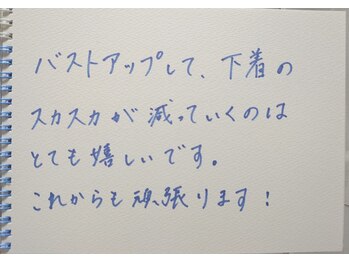 バストアップして、下着の
スカスカが減っていくのは
とても嬉しいです。
これからも頑張ります！